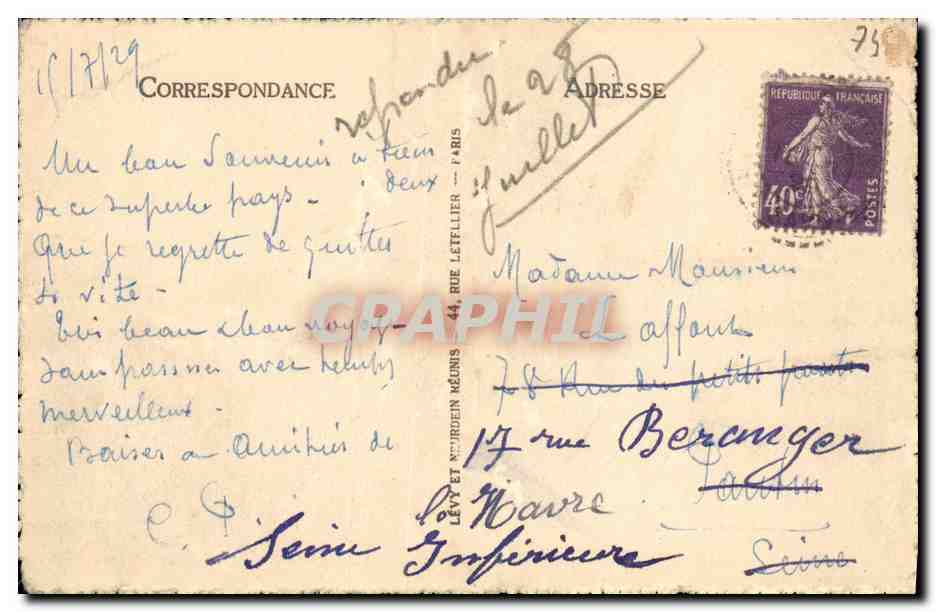 15/7/29
CORRESPONDANCE
Un beau Souvenir à tous
deux
de ce superbe pays -
Que je regrette de quitter
si vite -
Très beau & bon voyage
sans passer avec temps
merveilleux -
Baisers &amp; Amitiés de
C. P
repondu
le 28
Juillet
ADRESSE
75
REPUBLIQUE FRANÇAISE
40c
POSTES
LÉVY ET NEURDEIN RÉUNIS 44, RUE LETELLIER — PARIS
CRAPHIL
Madame Monsieur
Laffont
78 Rue des petits ponts
17 rue Beranger
Pantin
le Havre
Seine Inférieure
Seine